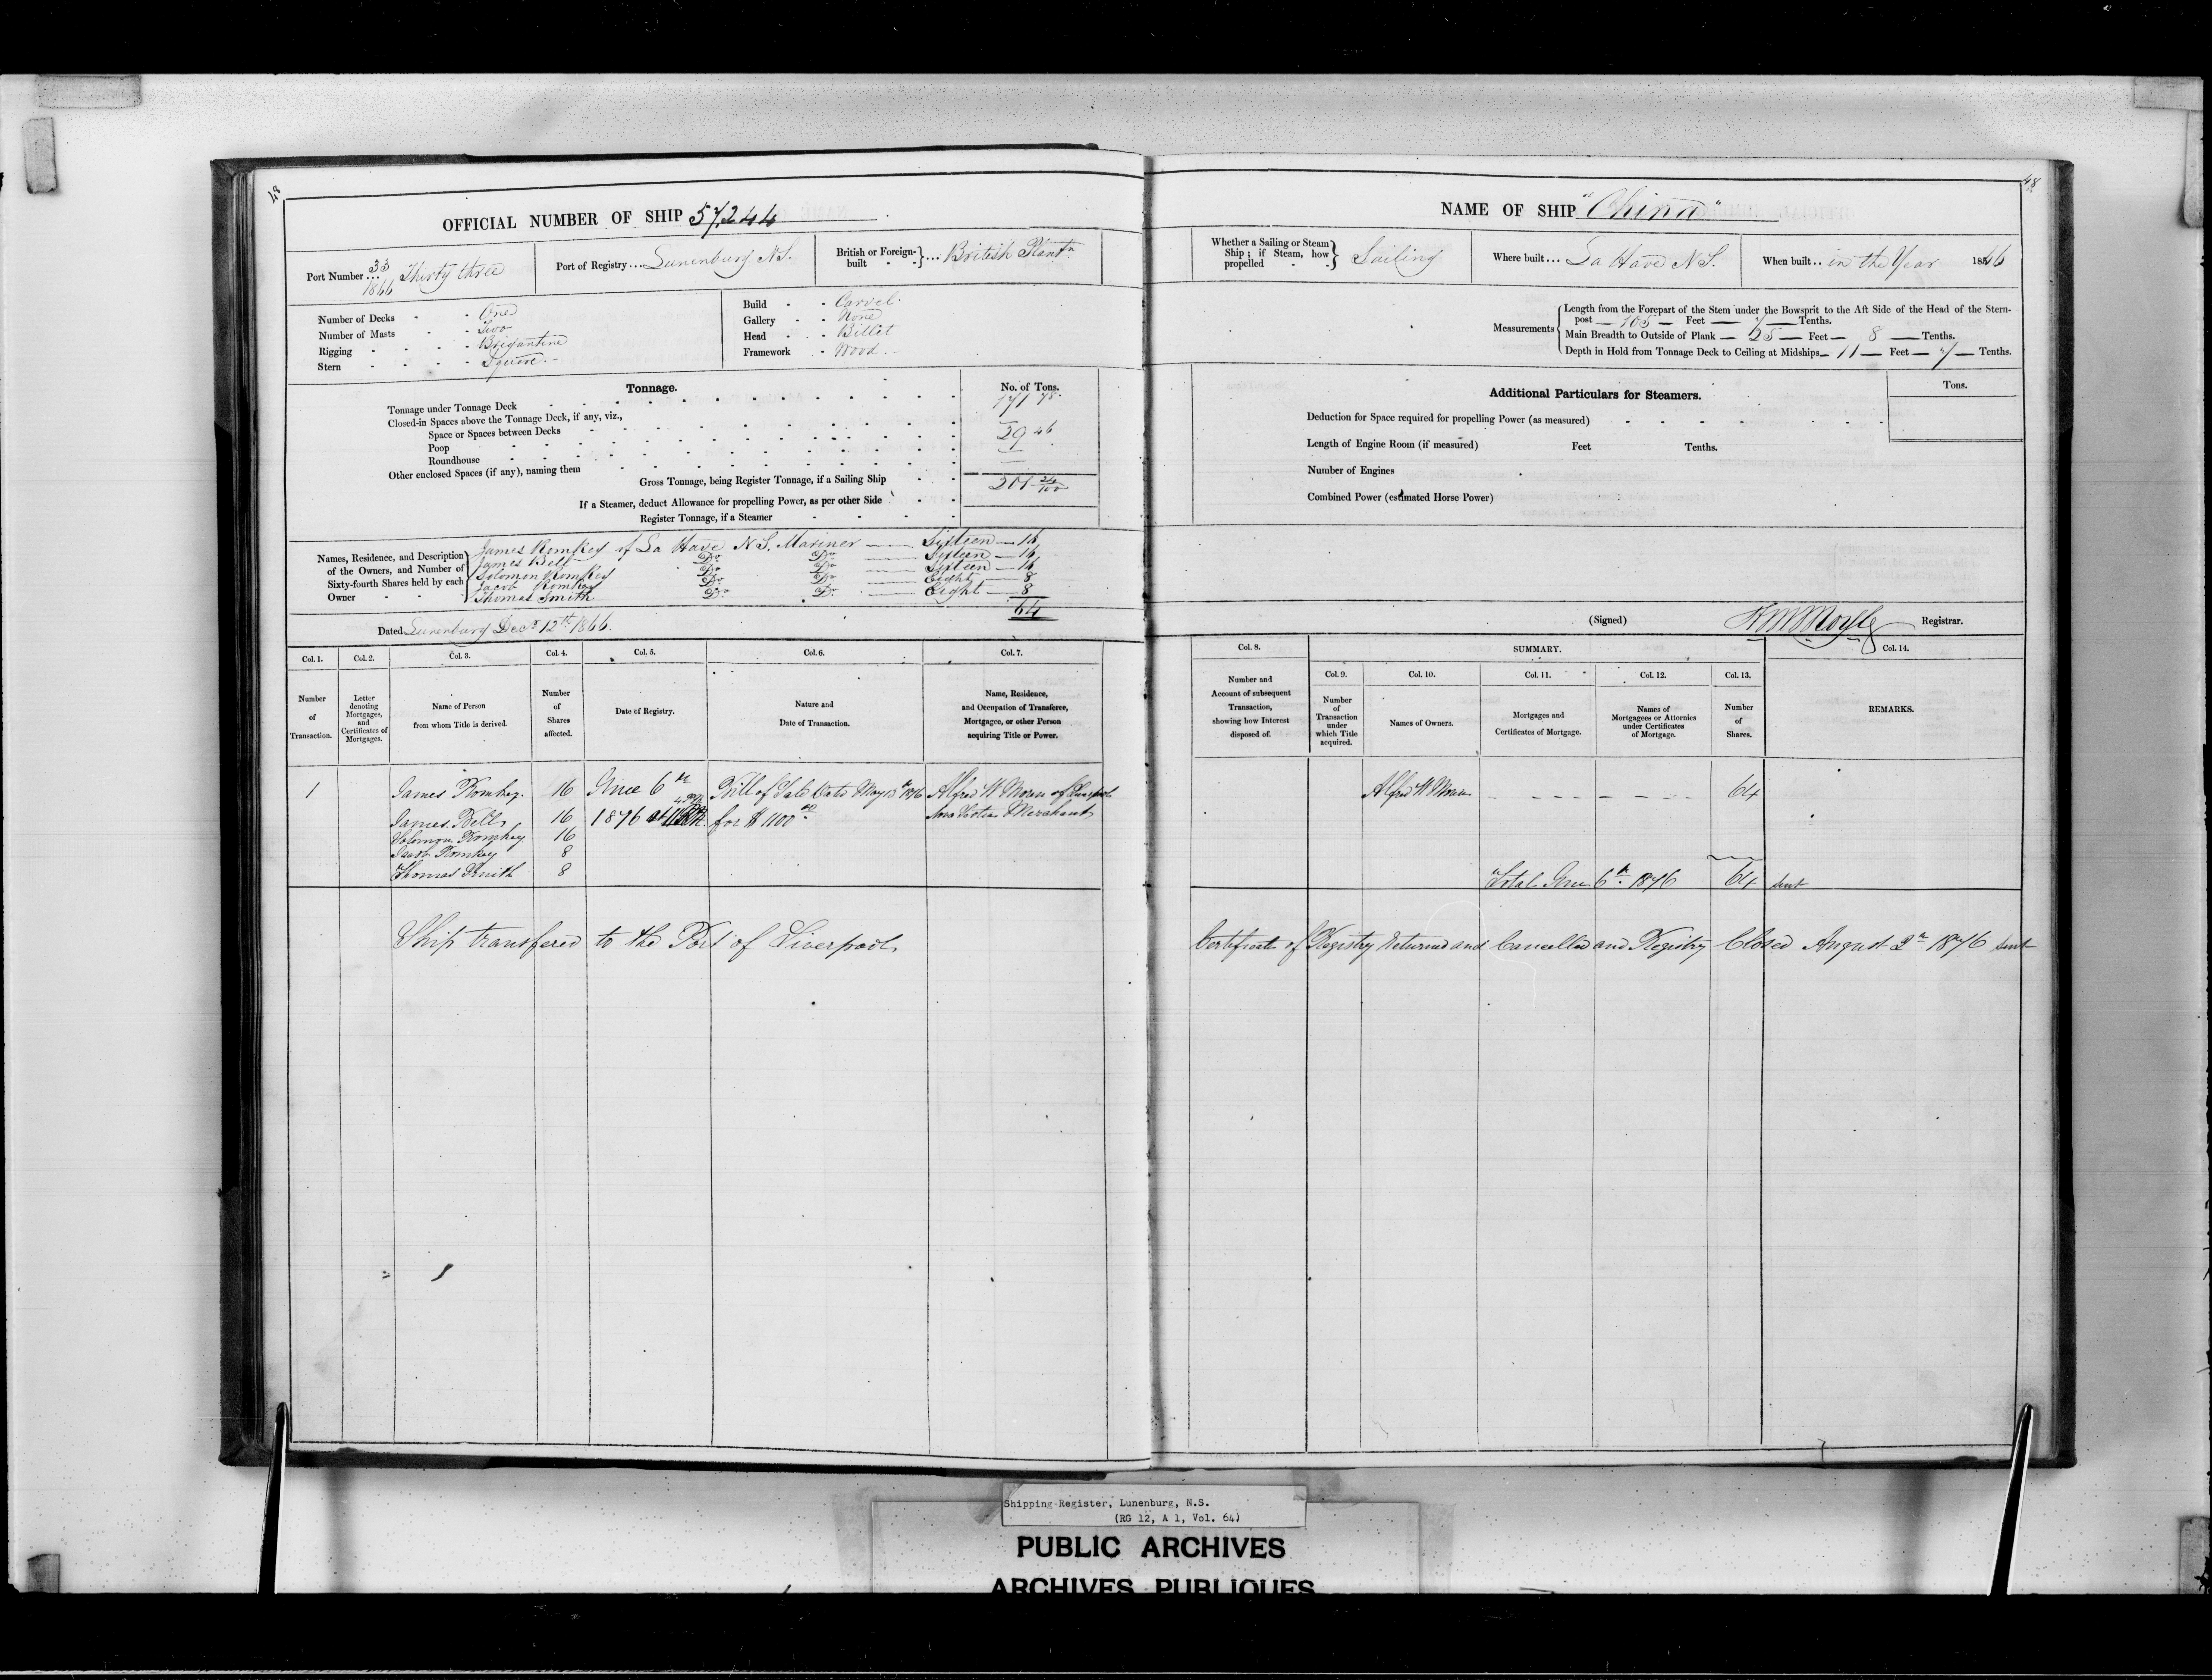 48
OFFICIAL NUMBER OF SHIP 57,244
Port Number ... 33 1866 Thirty three
Port of Registry ... Lunenburg N.S.
British or Foreign-built } ... British Plantn
Number of Decks - One
Number of Masts - Two
Rigging - Brigantine
Stern - Square.
Build - Carvel.
Gallery - None
Head - Billet
Framework - Wood.
Tonnage.
No. of Tons.
Tonnage under Tonnage Deck 171 78
Closed-in Spaces above the Tonnage Deck, if any, viz.,
Space or Spaces between Decks
Poop 29 46
Roundhouse
Other enclosed Spaces (if any), naming them
Gross Tonnage, being Register Tonnage, if a Sailing Ship 201 24/100
If a Steamer, deduct Allowance for propelling Power, as per other Side
Register Tonnage, if a Steamer
Names, Residence, and Description of the Owners, and Number of Sixty-fourth Shares held by each Owner
James Romkey of La Have N.S. Mariner — Sixteen — 16
James Bell Do Do — Sixteen — 16
Solomon Romkey Do Do — Sixteen — 16
Jacob Romkey Do Do — Eight — 8
Thomas Smith Do Do — Eight — 8
64
Dated Lunenburg Decr 12th 1866.
Col. 1. Col. 2. Col. 3. Col. 4. Col. 5. Col. 6. Col. 7.
Number of Transaction.
Letter denoting Mortgages, and Certificates of Mortgages.
Name of Person from whom Title is derived.
Number of Shares affected.
Date of Registry.
Nature and Date of Transaction.
Name, Residence, and Occupation of Transferee, Mortgagee, or other Person acquiring Title or Power.
1 James Romkey. 16 June 6th Bill of Sale Date May 13th 1876 Alfred W Moran of Liverpool
James Bell 16 1876 at for $ 1100 00 Nova Scotia Merchant
Solomon Romkey 16
Jacob Romkey 8
Thomas Smith 8
Ship transfered to the Port of Liverpool
48
NAME OF SHIP "China"
Whether a Sailing or Steam Ship; if Steam, how propelled } Sailing
Where built ... La Have N.S.
When built .. in the Year 1866
Measurements
Length from the Forepart of the Stem under the Bowsprit to the Aft Side of the Head of the Stern-
post — 105 — Feet — 7 — Tenths.
Main Breadth to Outside of Plank — 25 — Feet — 8 — Tenths.
Depth in Hold from Tonnage Deck to Ceiling at Midships — 11 — Feet — 7 — Tenths.
Additional Particulars for Steamers.
Tons.
Deduction for Space required for propelling Power (as measured)
Length of Engine Room (if measured) Feet Tenths.
Number of Engines
Combined Power (estimated Horse Power)
(Signed) Registrar.
Col. 8. SUMMARY. Col. 14.
Col. 9. Col. 10. Col. 11. Col. 12. Col. 13.
Number and Account of subsequent Transaction, showing how Interest disposed of.
Number of Transaction under which Title acquired.
Names of Owners.
Mortgages and Certificates of Mortgage.
Names of Mortgagees or Attornies under Certificates of Mortgage.
Number of Shares.
REMARKS.
Alfred W Moran 64
Total June 6th 1876 64 sent
Certificate of Registry Returned and Cancelled and Registry Closed August 2n 1876 sent
Shipping Register, Lunenburg, N.S.
(RG 12, A 1, Vol. 64)
PUBLIC ARCHIVES
ARCHIVES PUBLIQUES